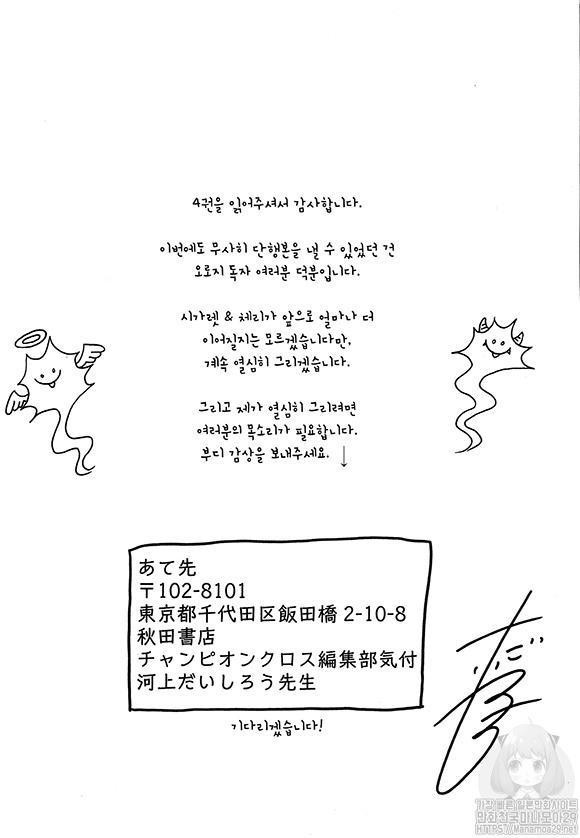 4권을 읽어주셔서 감사합니다.
이번에도 무사히 단행본을 낼 수 있었던 건
오로지 독자 여러분 덕분입니다.
시가렛 & 체리가 앞으로 얼마나 더
이어질지는 모르겠습니다만,
계속 열심히 그리겠습니다.
그리고 제가 열심히 그리려면
여러분의 목소리가 필요합니다.
부디 감상을 보내주세요. ↓
あて先
〒102-8101
東京都千代田区飯田橋 2-10-8
秋田書店
チャンピオンクロス編集部気付
河上だいしろう先生
기다리겠습니다!
가장 빠른 일본만화사이트
만화천국 마나모아29
HTTPS://Manamoa29.net